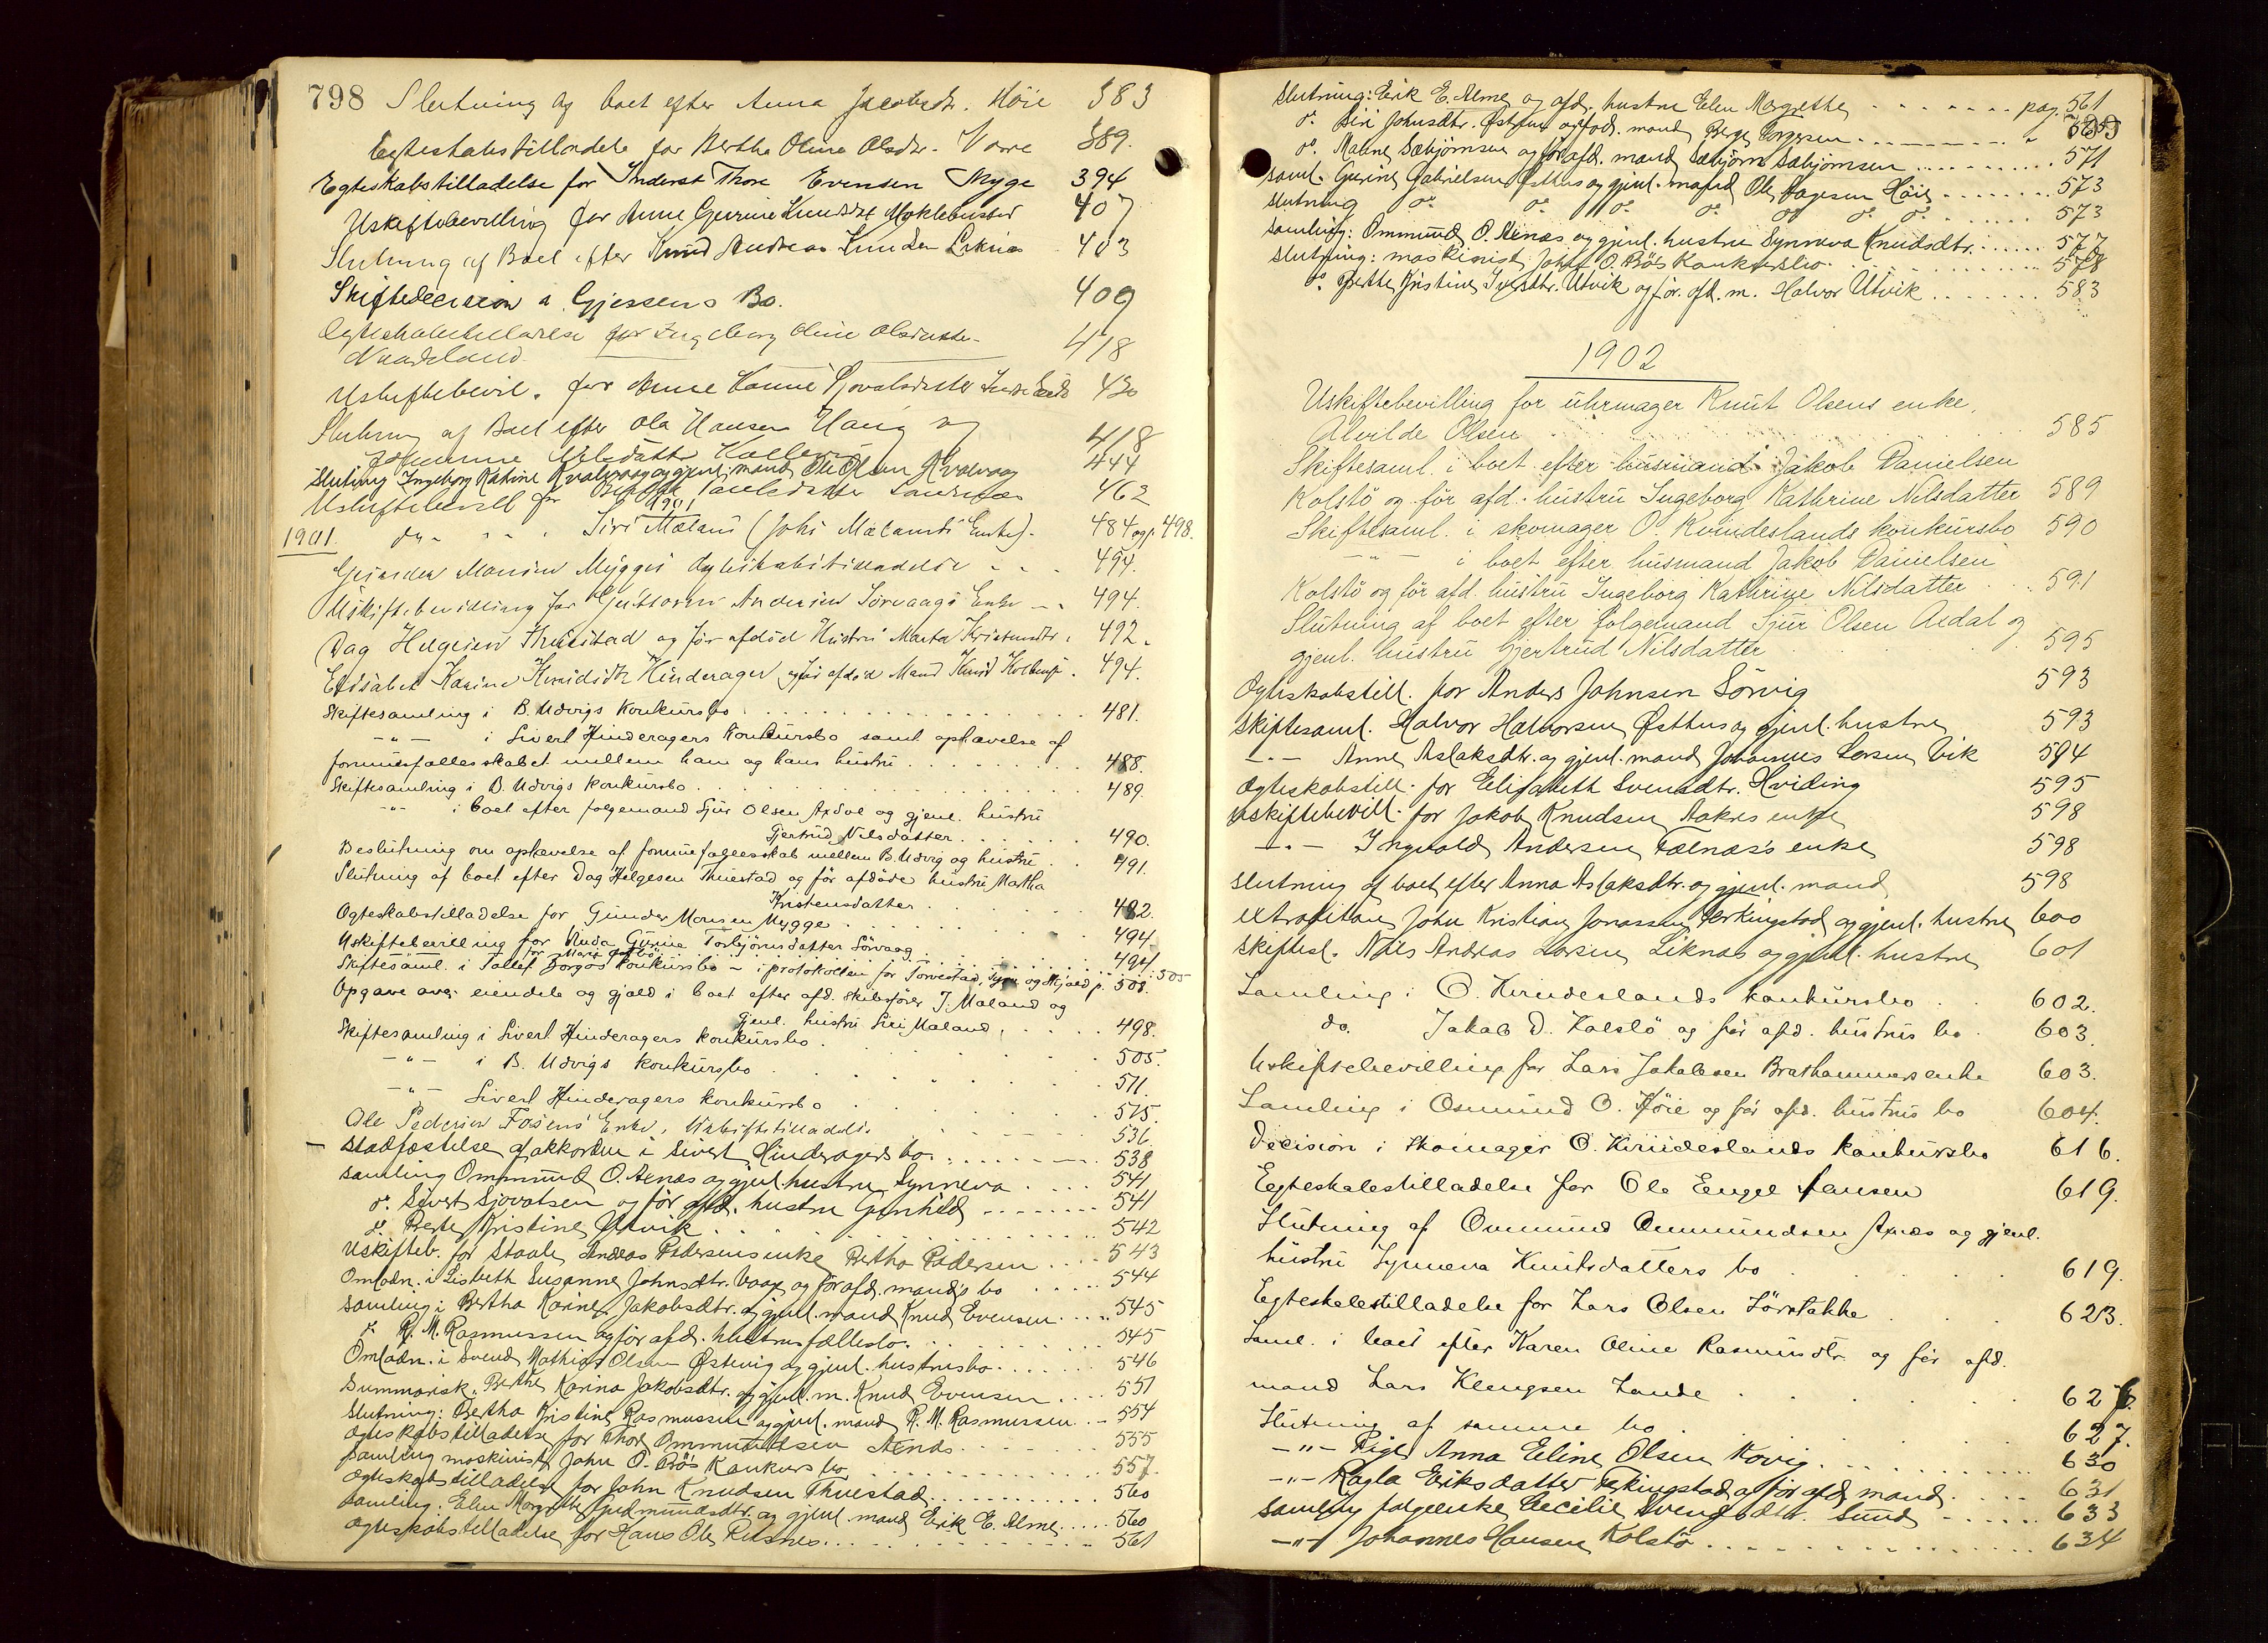 798 Slutning af boet efter Anna Jacobsdtr. Höie 383
Egteskabstilladelse for Berthe Oline Olsdtr. 389.
Egteskabstilladelse for Inderst Thore Evensen Myge 394
Uskiftebevilling for Anne Gurine Knudsdt Myklebustad 407
Slutning af Boet efter Knud Andreas 403
Skiftedecision i Gjessens Bo. 409
Egteskabstilladelse for Ingeborg Oline Olsdatter 418
Uskiftebevil. for Anne 430
Slutning af Boet efter Ola Hansen Haug og 418
Slutning Ingeborg Katine Kvalevaag og gjenl. mand Ole Olsen Kvalvaag 444
Uskiftebevill for 462
1901
1901. Siri Mæland (Johs Mælands Enke). 484 og p. 498.
Gunder Monsen Mygges Egteskabstilladelse 494.
Uskiftebevilling for Andersen Sørvaags Enke 494.
Dag Helgesen Thuestad og før afdød Hustru Marta Kristensdtr. 492.
Elisabet Karine Knudsdtr Hinderager og før afdød Mand Knud 494.
Skiftesamling i B. Udvigs Konkursbo 481.
-"- i Sivert Hinderagers Konkursbo samt ophævelse af
formuesfællesskabet mellem ham og hans hustru 488.
Skiftesamling i B. Udvigs konkursbo 489.
-"- i boet efter folgemand Sjur Olsen Axdal og gjenl. hustru
Gjertrud Nilsdatter 490.
Beslutning om ophævelse af formuefællesskab mellem B. Udvig og hustru 491.
Slutning af boet efter Dag Helgesen Thuestad og før afdøde hustru Martha
Kristensdatter 492.
Ogteskabstilladelse for Gunder Monsen Mygge 494.
Uskiftebevilling for Gurine Torbjörnsdatter Sörvaag 494.
Skiftesaml. i Tollef Borgos konkursbo - i protokollen for Torvestad, og Skjold p. 501. 505
Opgave over eiendele og gjæld i boet efter afd. skibsfører J. Mæland og
Gjenl. hustru Siri Mæland 498.
Skiftesamling i Sivert Hinderagers konkursbo 505.
-"- i B. Udvigs konkursbo 511.
-"- Sivert Hinderagers konkursbo 515.
Ole Pedersen Fosens Enke, Uskiftetilladelse 536.
Stadfæstelse af akkorden i Sivert Hinderagers bo 538
Samling Ommund O. Axnæs og gjenl. hustru Synneva 541
do. Sivert Sjovatsen og før afd. hustru Gunhild 541
do. Berte Kristine Utvik 542
Uskifteb. for Staale Andreas Pedersens enke Bertha Pedersen 543
Omladn. i Lisbeth Susanne Johnsdtr. Vaage og før afd. mands bo 544
Samling i Bertha Karine Jakobsdtr. og gjenl. mand Knud Evensen 545
do. R. M. Rasmussen og før afd. hustrus fællesbo 545
Omladn. i Svend Mathias Olsen Østevig og gjenl. hustrus bo 546
Summarisk. Berthe Karina Jakobsdtr. og gjenl. m. Knud Evensen 551
Slutning: Bertha Kristine Rasmussen og gjenl. mand R. M. Rasmussen 554
Ogteskabstilladelse for Thor Ommundsen Axnæs 555
Samling maskinist John O. Bö's Konkursbo 557.
Ogteskabstilladelse for John Knudsen Thuestad 560
Samling. Elen Margrethe Gudmundsdtr. og gjenl. mand Erik E. Alme 560
Ogteskabstilladelse for Hans Ole Risnes 561
Slutning: Erik E. Alme og afd. hustru Elen Margrethe pag. 561
do. Siri Johnsdtr. og før afd. mand Berge Borgersen
do. Malene Sæbjörnsen og før afd. mand Sæbjörn Sæbjörnsen 571
Saml. Gurine Gabrielsen Østhus og gjenl. mand Ole Aagesen Höie 573
Slutning do. do. do. do. do. do. do. 573
Samling: Ommund O. Axnæs og gjenl. hustru Synneva Knudsdtr. 577
Slutning: maskinist John O. Bö's Konkursbo 578
do. Berthe Kristine Iversdtr. Utvik og før. afd. m. Halvor Utvik 583
1902
Uskiftebevilling for uhrmager Knut Olsens enke,
Alvilde Olsen 585
Skiftesaml. i boet efter husmand Jakob Danielsen
Kolstö og för afd. hustru Ingeborg Kathrine Nilsdatter 589
Skiftesaml. i skomager O. Kvindeslands konkursbo 590
-"- i boet efter husmand Jakob Danielsen
Kolstö og för afd. hustru Ingeborg Kathrine Nilsdatter 591
Slutning af boet efter folgemand Sjur Olsen Axdal og
gjenl. hustru Gjertrud Nilsdatter 595
Ogteskabstill. for Anders Johnsen Sörvig 593
Skiftesaml. Halvor Halvorsen Østhus og gjenl. hustru 593
-"- Anne Aslaksdtr. og gjenl. mand Johannes Larsen Vik 594
Ogteskabstill. for Elisabeth Svendsdtr. Hviding 595
Uskiftebevill. for Jakob Knudsen Aakres enke 598
-"- Ingvald Andersen Fælnæs's enke 598
Slutning af boet efter Anna Aslaksdtr. og gjenl. mand 598
Extraditan John Kristian Jonassen Ferkingstad og gjenl. hustru 600
Skiftesl. Nils Andreas Larsen Liknæs og gjenl. hustru 601
Samling i O. Kvindeslands konkursbo 602.
do. Jakob D. Kolstö og för afd. hustrus bo 603.
Uskiftebevilling for Lars Jakobsen Brathammers enke 603.
Samling i Osmund O. Höie og för afd. hustrus bo 604.
Decision i skomager O. Kvindeslands konkursbo 616.
Egteskabstilladelse for Ole Engel Hansen 619.
Slutning af Ommund Ommundsen Axnæs og gjenl.
hustru Synneva Knutsdatters bo 619.
Egteskabstilladelse for Lars Olsen Sörstakke 623.
Saml. i boet efter Karen Oline Rasmusdtr. og för afd.
mand Lars Klengsen Lande 626.
Slutning af samme bo 627.
-"- Pige Anna Eline Olsen Kovig 630
-"- Ragla Eriksdatter Ferkingstad og før afd. mand 631
Samling folgeenke Cecilie Svendsdtr. Sund 633
-"- Johannes Hansen Kolstö 634